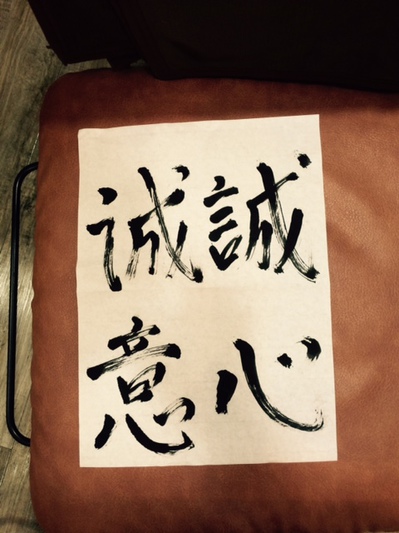 誠心
诚意